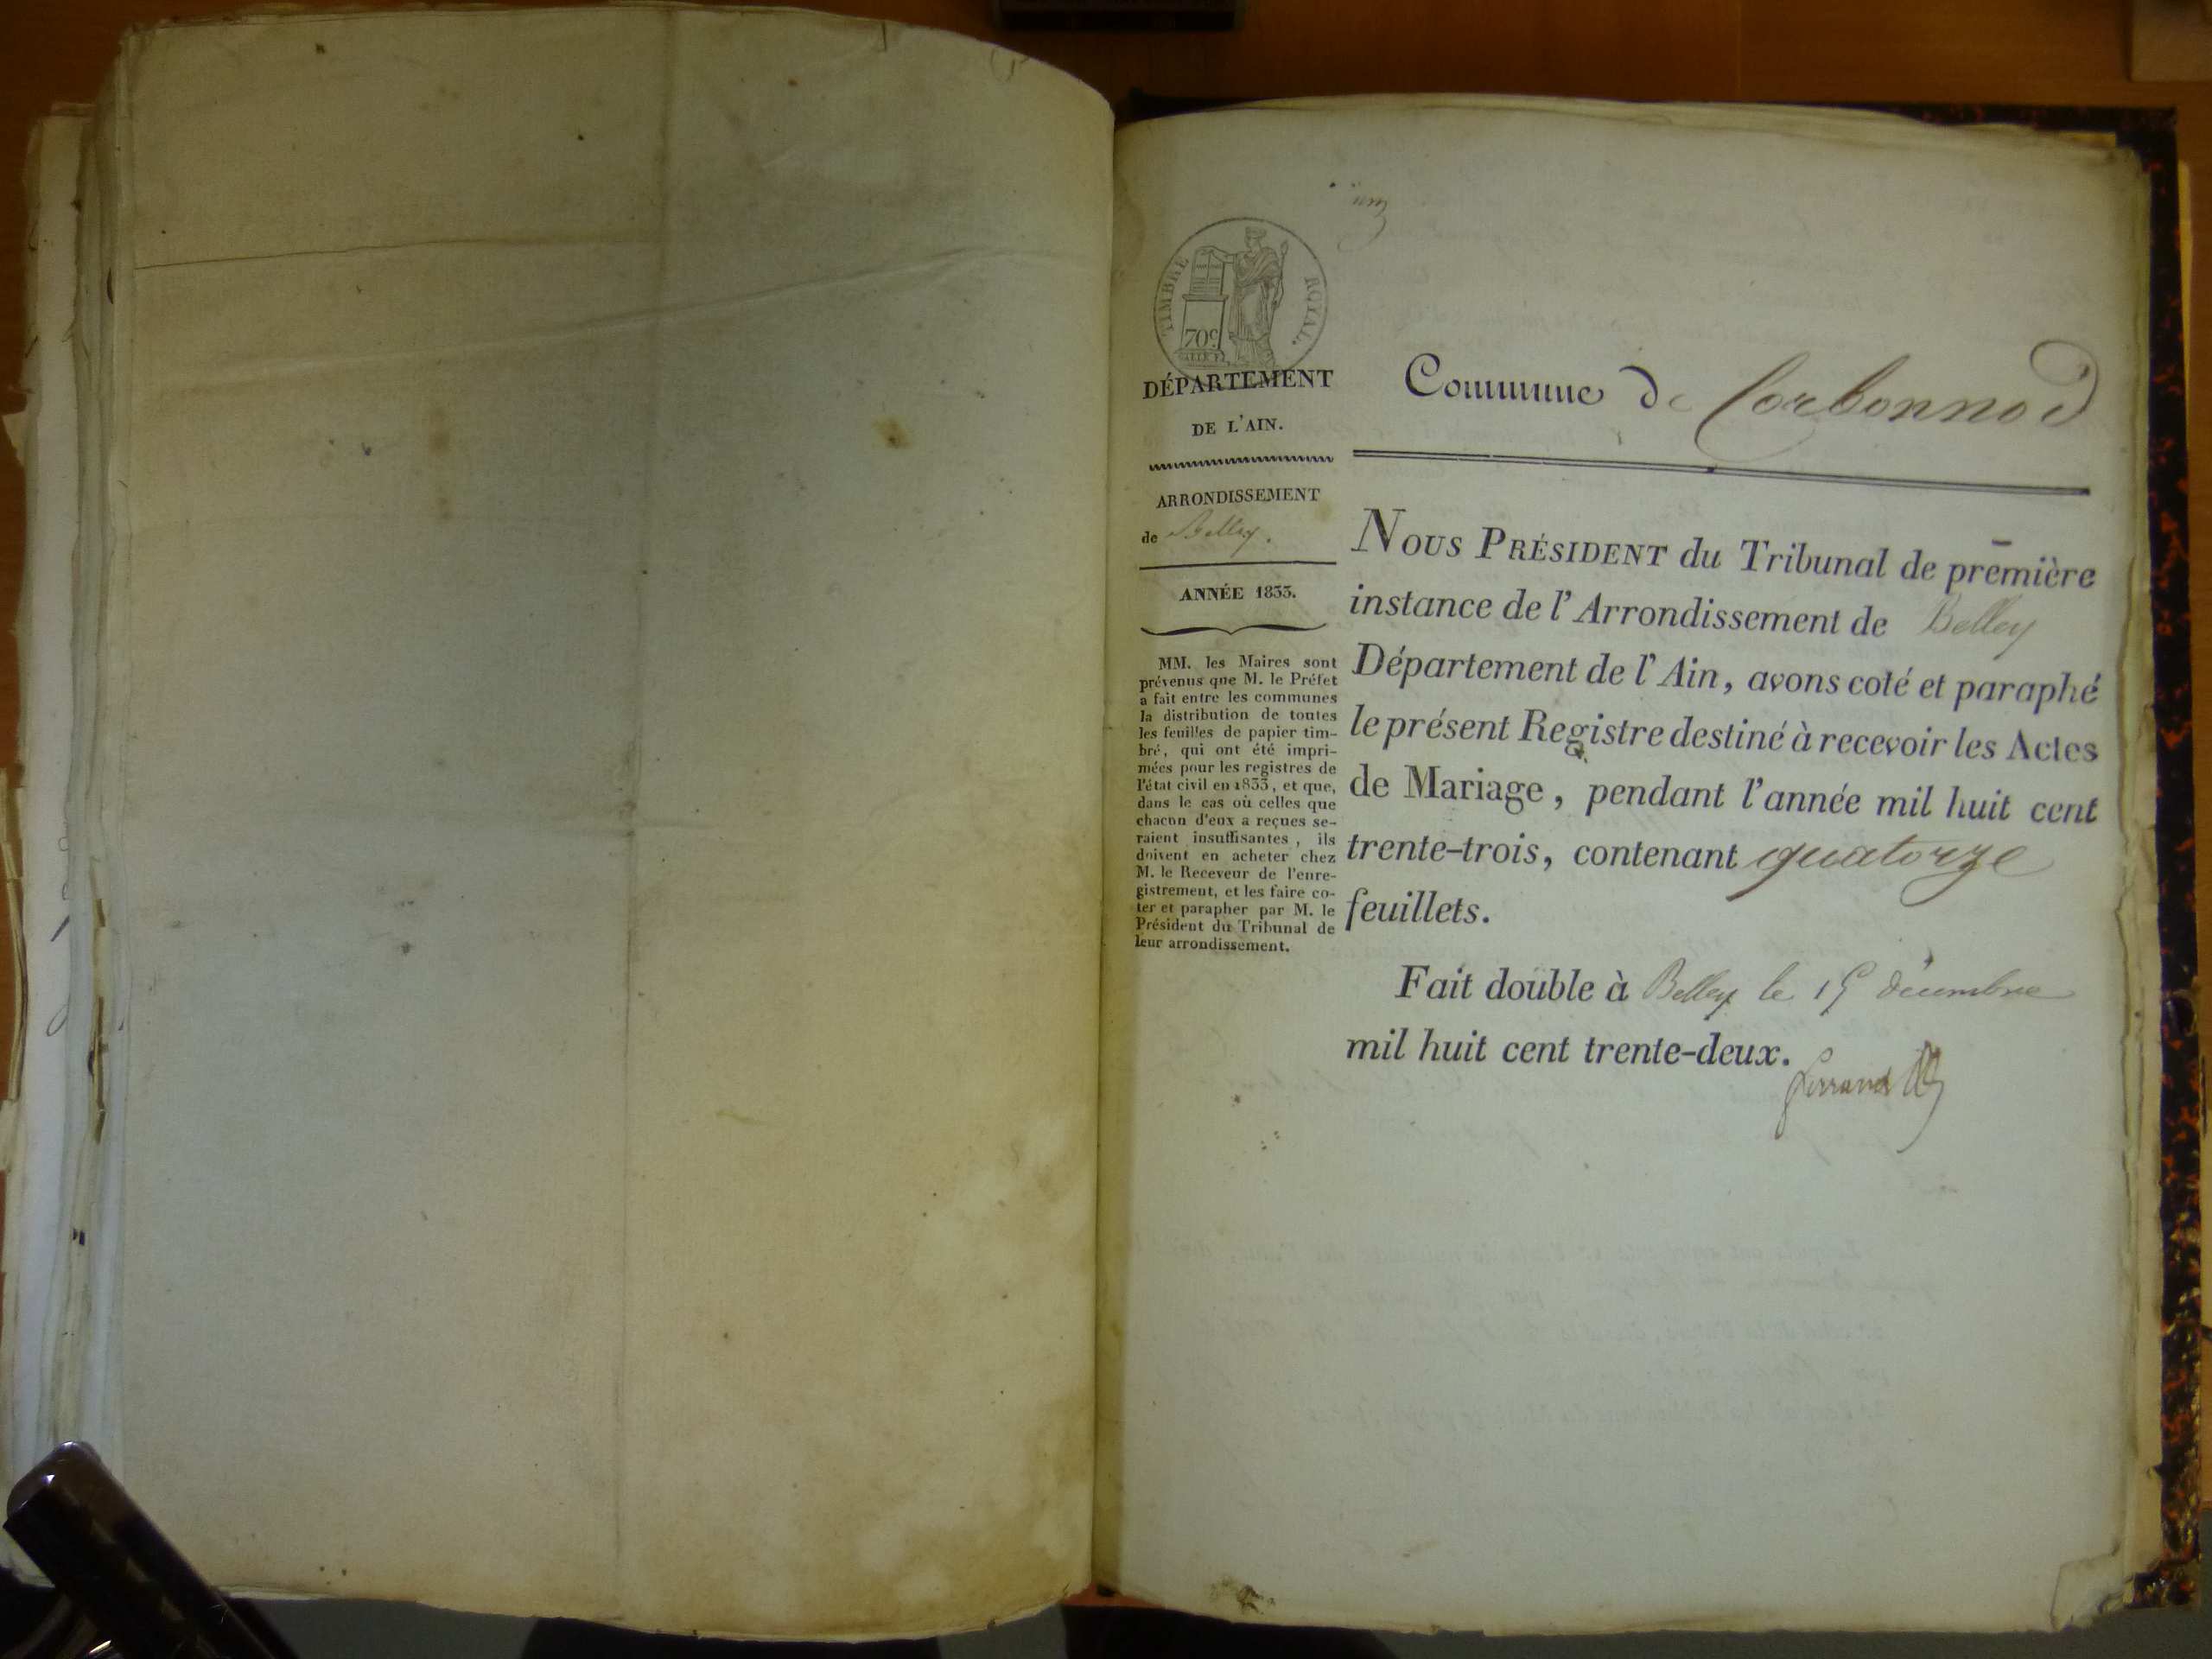 TIMBRE ROYAL.
70c
DÉPARTEMENT
DE L'AIN.
ARRONDISSEMENT
de Belley.
ANNÉE 1833.
MM. les Maires sont
prévenus que M. le Préfet
a fait entre les communes
la distribution de toutes
les feuilles de papier tim-
bré, qui ont été impri-
mées pour les registres de
l'état civil en 1833, et que,
dans le cas où celles que
chacun d'eux a reçues se-
raient insuffisantes, ils
doivent en acheter chez
M. le Receveur de l'enre-
gistrement, et les faire co-
ter et parapher par M. le
Président du Tribunal de
leur arrondissement.
Commune de Corbonnod
NOUS PRÉSIDENT du Tribunal de première
instance de l'Arrondissement de Belley
Département de l'Ain, avons coté et paraphé
le présent Registre destiné à recevoir les Actes
de Mariage, pendant l'année mil huit cent
trente-trois, contenant quatorze
feuillets.
Fait double à Belley le 15 décembre
mil huit cent trente-deux.